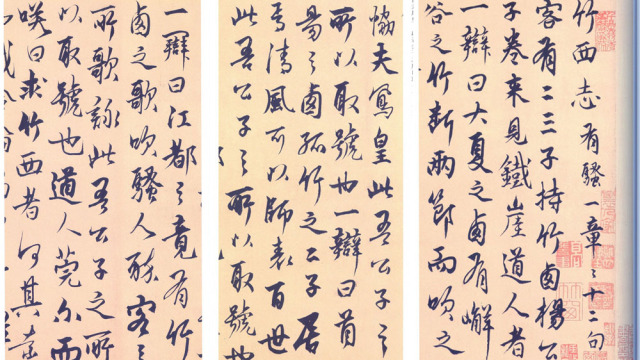 竹西志 有騷一章〻十二句
客有二三子持竹西楊公
子卷来見鐵崖道人者
一辯曰大夏之西有嶰
谷之竹斷兩節而吹之
協夫鳳皇此吾公子之
所以取號也一辯曰首
昜之西孤竹之二子居
焉清風可以師表百世
此吾公子之所以取號也
一辯曰江都之竟有竹
西之歌吹騷人醉客之
所歌詠此吾公子之所
以取號也道人莞尔而
咲曰求竹西者何其